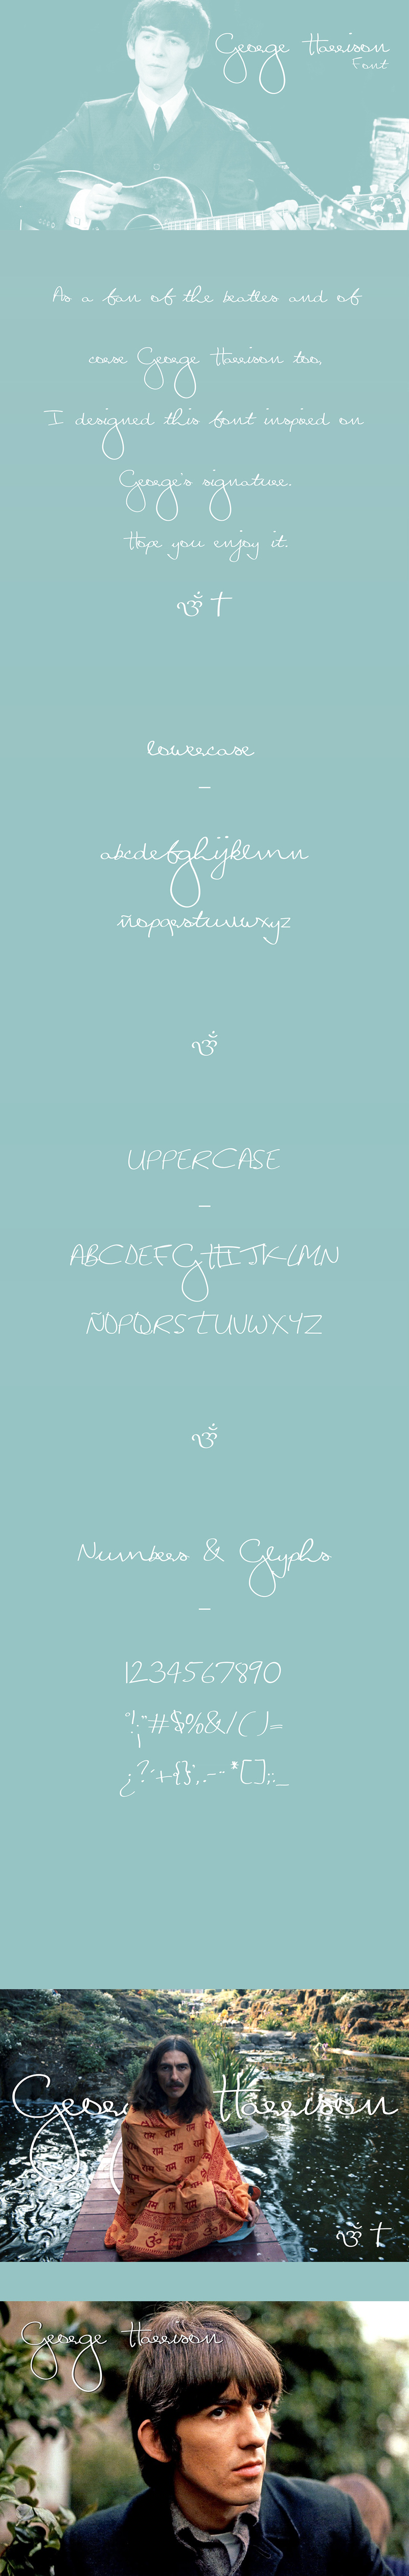 George Harrison
Font
As a fan of the beatles and of
corse George Harrison too,
I designed this font inspired on
George's signature.
Hope you enjoy it.
ॐ †
lowercase
—
abcdefghijklmn
ñopqrstuvwxyz
ॐ
UPPERCASE
—
ABCDEFGHIJKLMN
ÑOPQRSTUVWXYZ
ॐ
Numbers & Glyphs
—
1234567890
º!¡"#$%&/()=
¿?´+{};,.-¨*[];:_
Geor Harrison
ॐ †
George Harrison